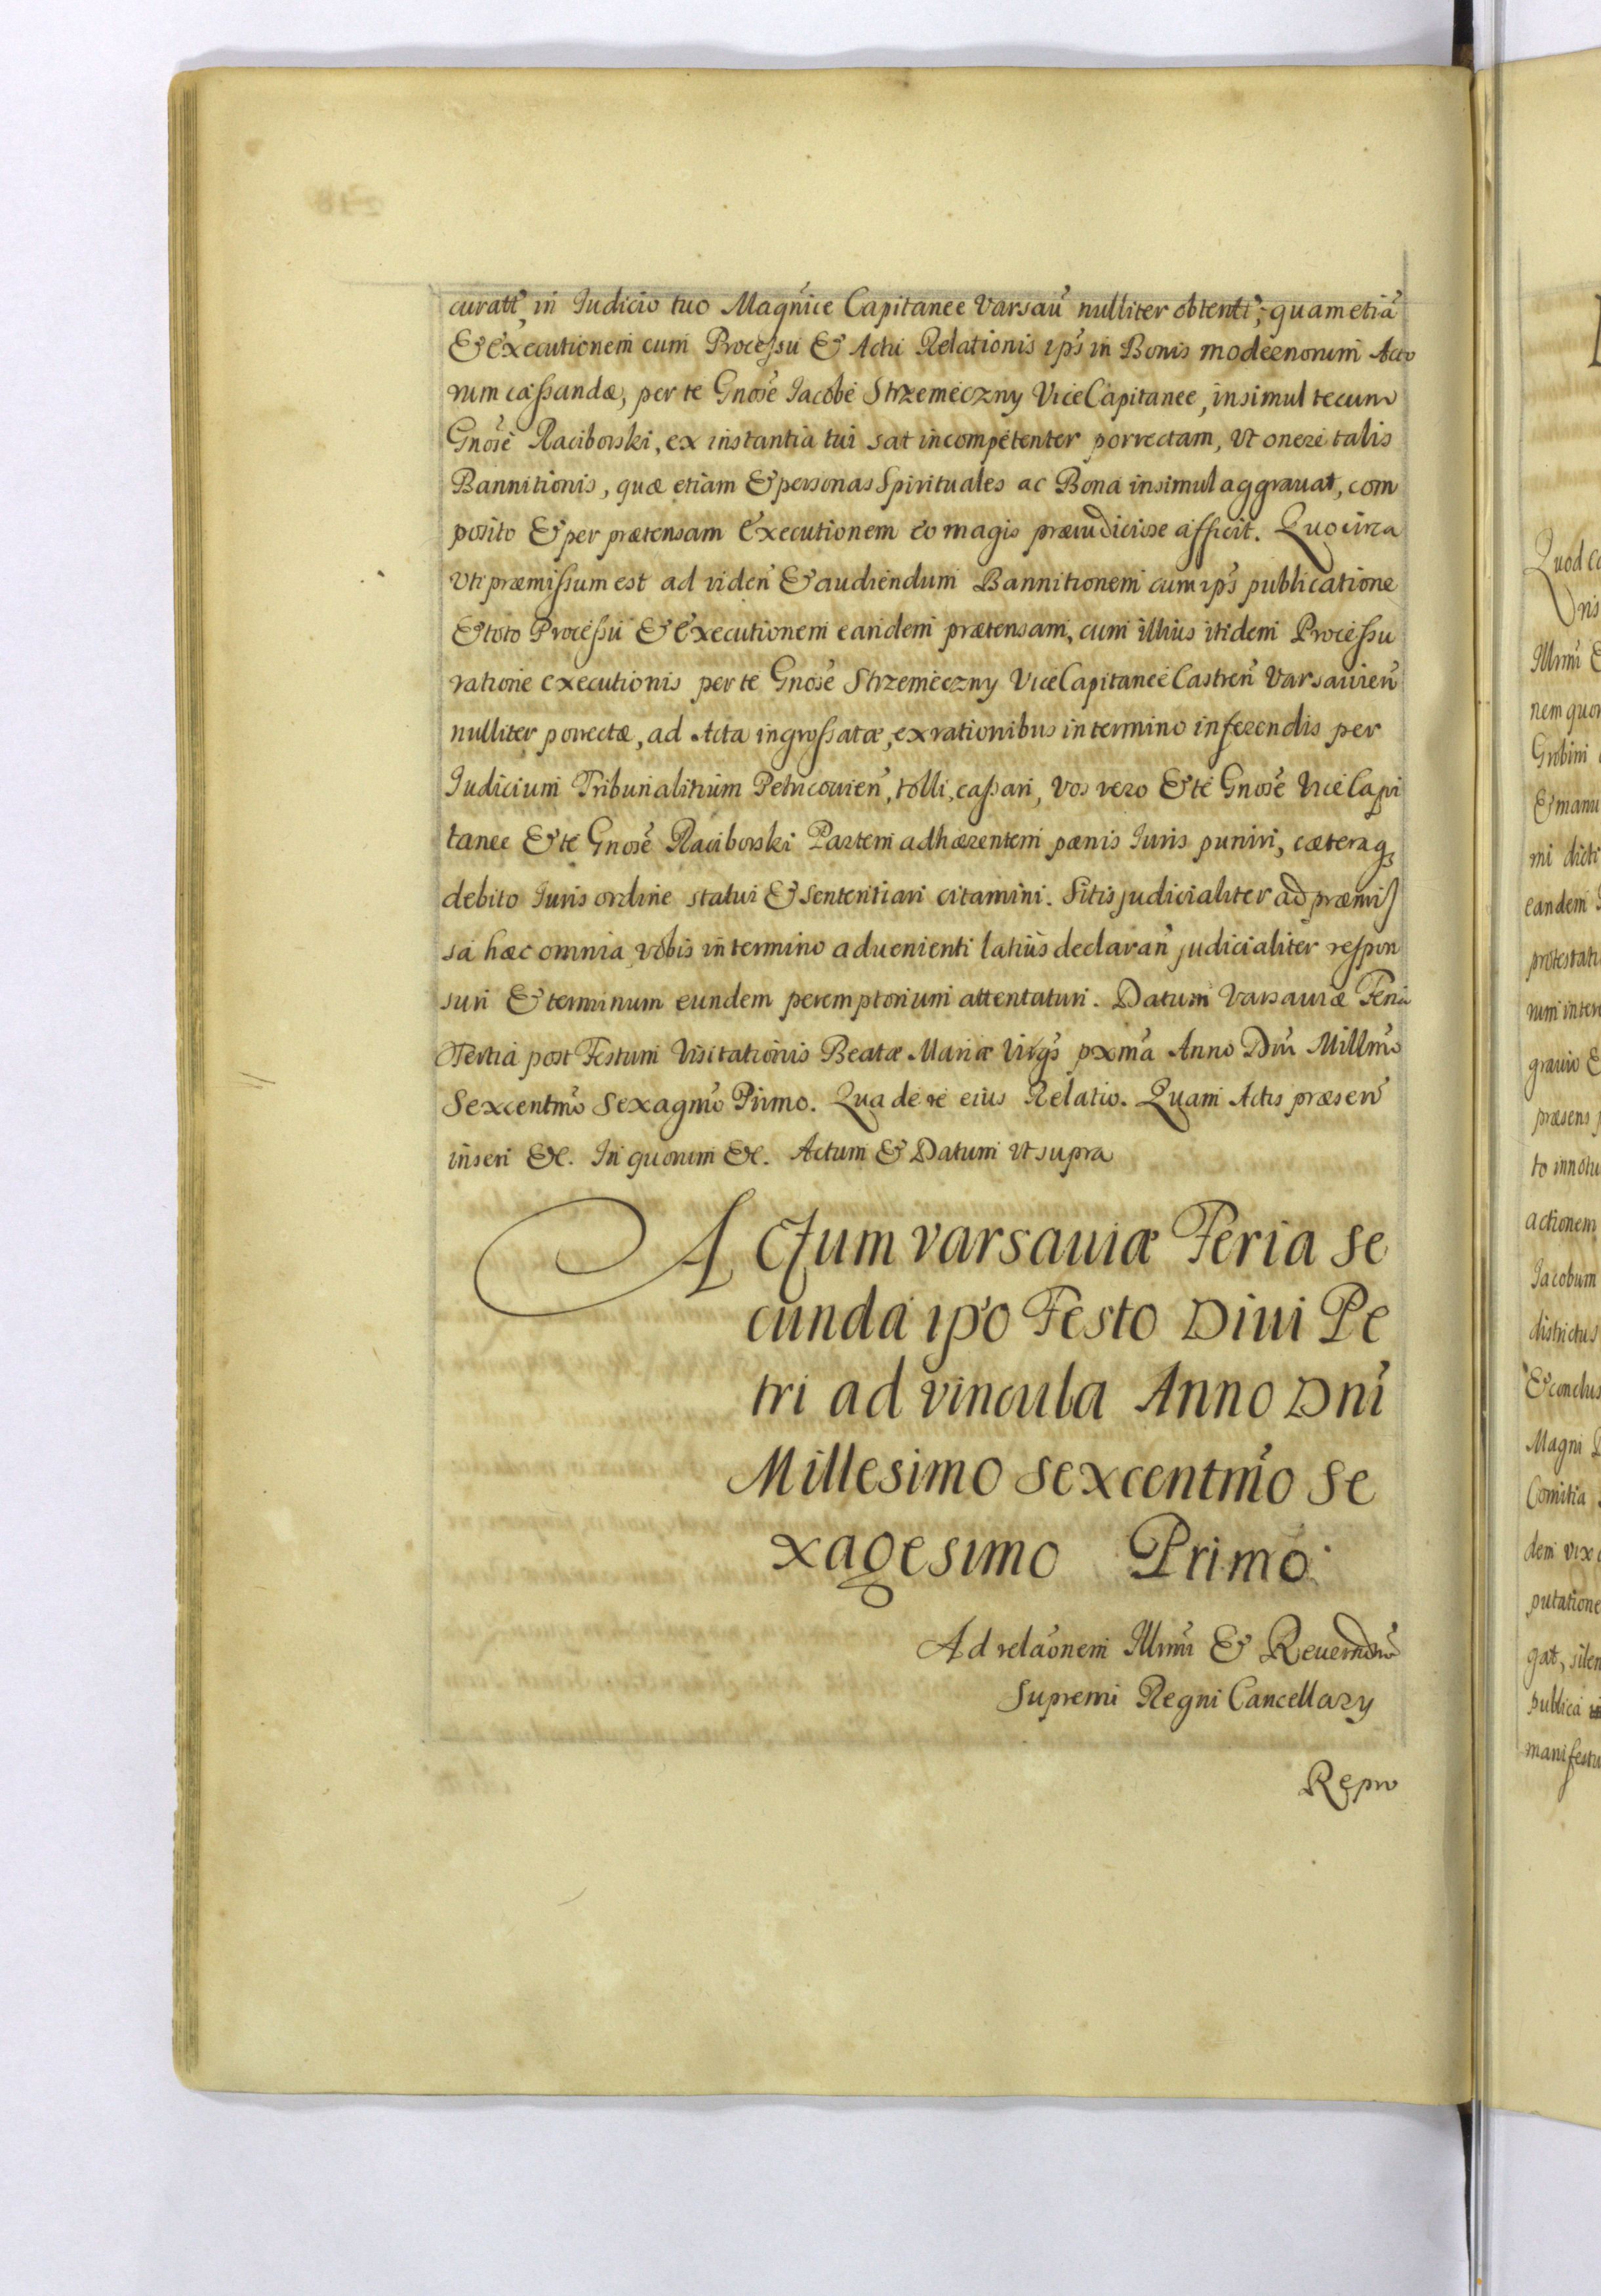 curatt, in Judicio tuo Magnice Capitanee Varsau nulliter obtenti, quam etia
& Executionem cum Processu & Actu Relationis ips in Bonis modernorum Acto
rum cassandæ, per te Gnose Jacobe Strzemeczny ViceCapitanee, insimul tecum
Gnose Raciborski, ex instantia tui sat incompetenter porrectam, Vt onere talis
Bannitionis, quæ etiam & personas Spirituales ac Bona insimul aggrauat, com
posito & per prætensam Executionem eo magis præiudiciose afficit. Quocirca
Vti præmissum est ad viden & audiendum Bannitionem cum ips publicatione
& toto Processu & Executionem eandem prætensam, cum illius itidem Processu
ratione executionis per te Gnose Strzemeczny ViceCapitanee Castren Varsauien
nulliter porrectæ, ad Acta ingrossatæ, ex rationibus in termino inferendis per
Judicium Tribunalitium Petricouien, tolli, cassari, Vos vero & te Gnose ViceCapi
tanee & te Gnose Raciborski Partem adhærentem pænis Juris puniri, cæteraq
debito Juris ordine statui & sententiari citamini. Sitis judicialiter ad præmis
sa hæc omnia vobis in termino aduenienti latius declaran judicialiter respon
suri & terminum eundem peremptorium attentaturi. Datum Varsauiæ Feria
Tertia post Festum Visitationis Beatæ Mariæ Virgs pxma Anno Dni Millmo
Sexcentmo Sexagmo Primo. Qua de re eius Relatio. Quam Actis præsen
inseri &c. In quorum &c. Actum & Datum Vt supra
Actum varsauiæ Feria se
cunda ipo Festo Diui Pe
tri ad vincula Anno Dni
Millesimo sexcentmo se
xagesimo Primo
Ad relaonem Illmi & Reuerndmi
Supremi Regni Cancellary
Repro
Quod
Illmi &
nem quor
& manu
mi dicti
eandem
protestati
rum inter
grauio &
præsens
to innotu
actionem
Jacobum
districtus
& conclus
Magni
Comitia
dem vix
putatione
gat, silen
publica
manifestu